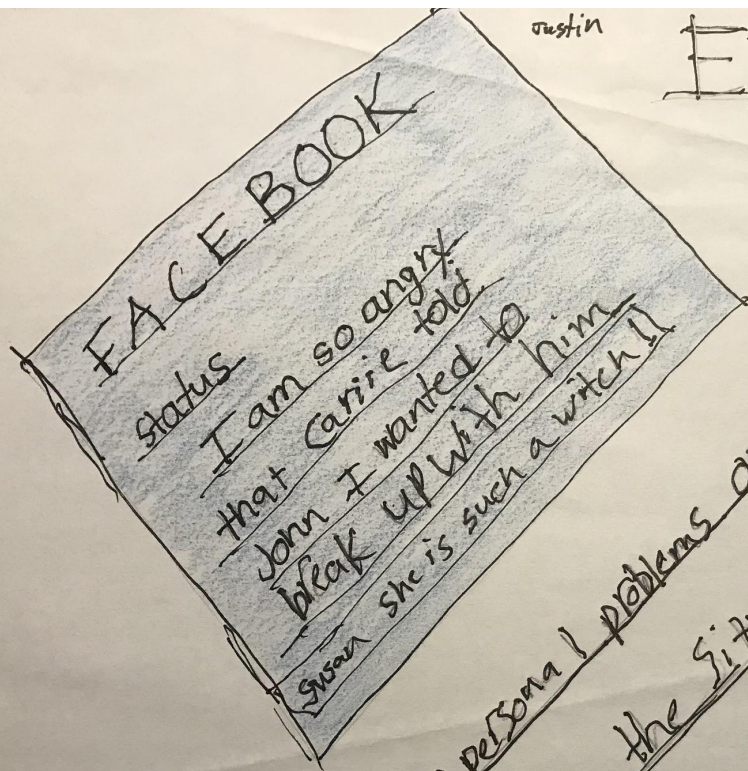 Justin
E
FACEBOOK
status
I am so angry
that Carrie told
John I wanted to
break up with him
Susan she is such a witch!!
personal problems
the